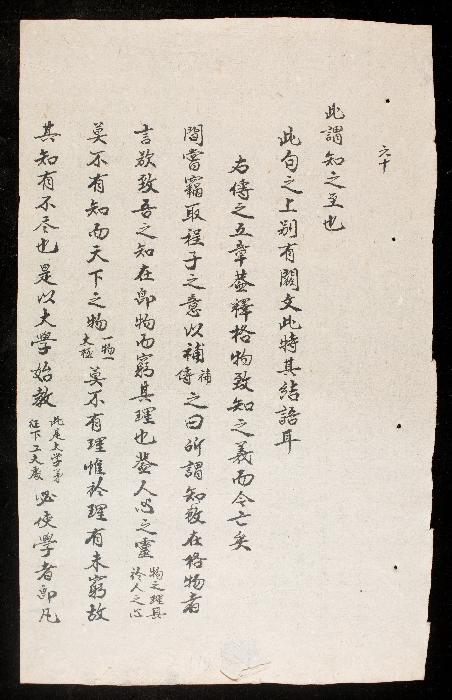 六十
此謂知之至也
此句之上別有闕文此特其結語耳
右傳之五章蓋釋格物致知之義而今亡矣
間嘗竊取程子之意以補補傳之曰所謂知致在格物者
言欲致吾之知在即物而窮其理也蓋人心之靈物之理具於人之心
莫不有知而天下之物一物一太極莫不有理惟於理有未窮故
其知有不尽也是以大学始教此是大学第一下工夫處必使學者即凡